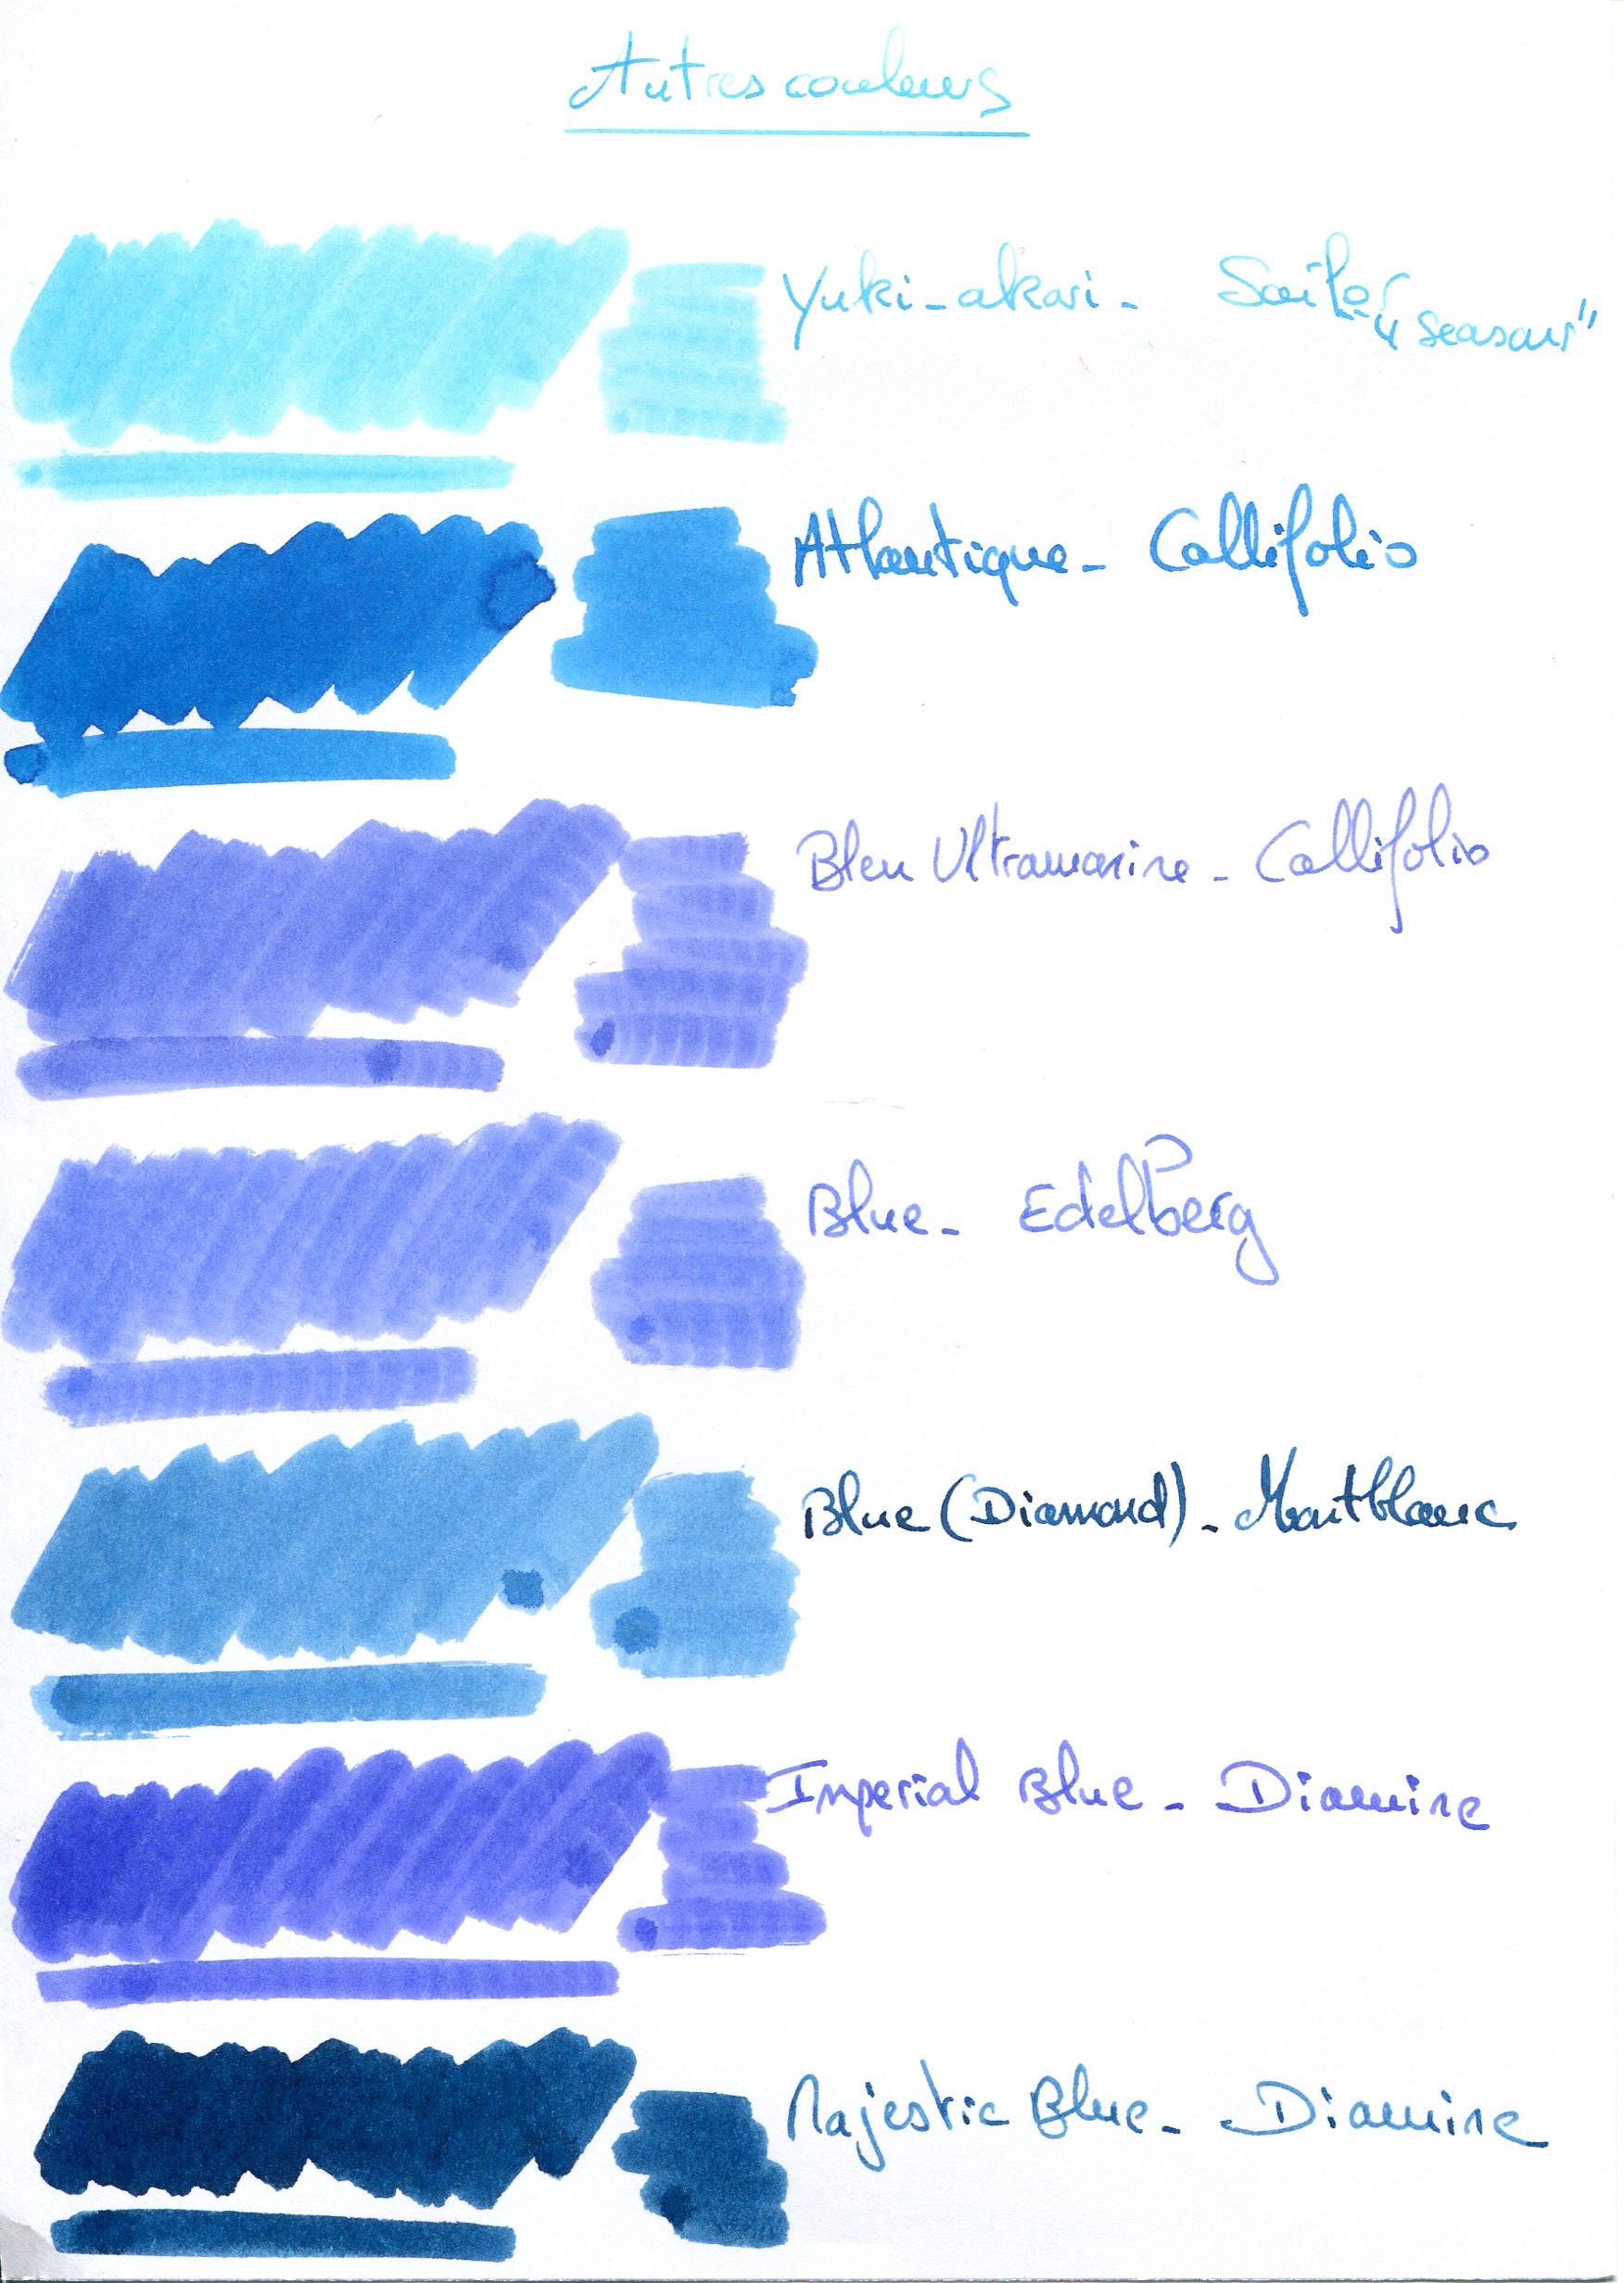 Autres couleurs
Yuki-akari - Sailor "seasons"
Atlantique - Callifolio
Bleu Ultramarine - Callifolio
Blue - Edelberg
Blue (Diamond) - Montblanc
Imperial Blue - Diamine
Majestic Blue - Diamine